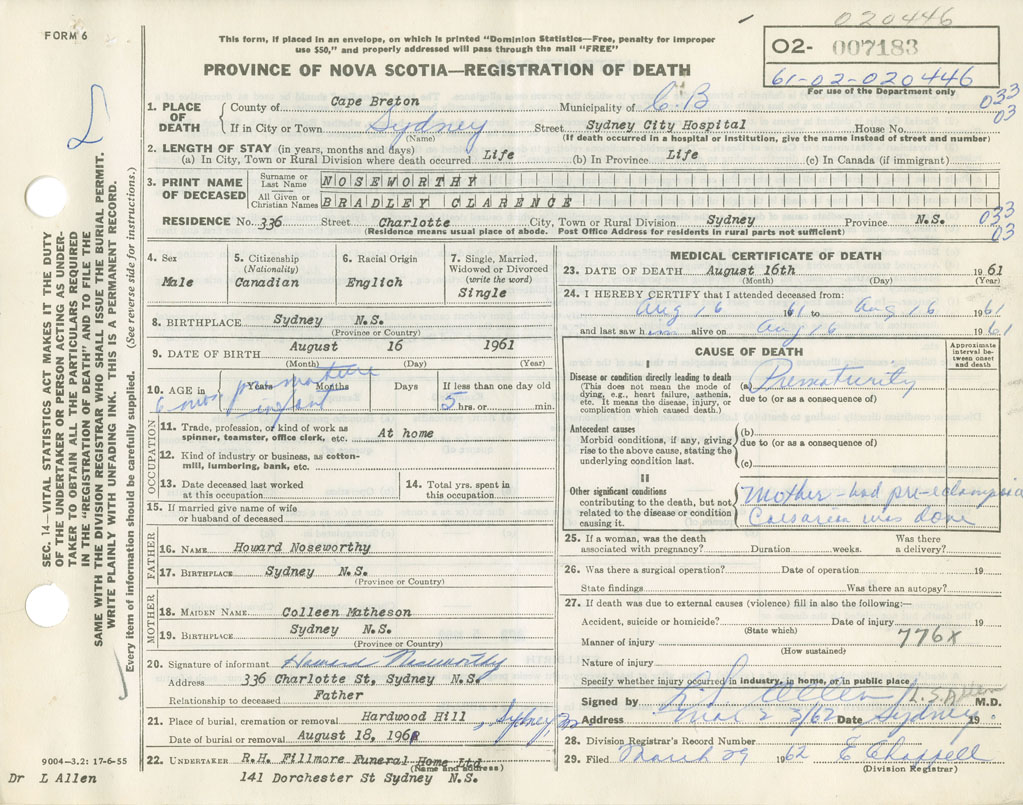 020446
FORM 6
This form, if placed in an envelope, on which is printed "Dominion Statistics—Free, penalty for improper
use $50," and properly addressed will pass through the mail "FREE"
02- 007183
61-02-020446
For use of the Department only
PROVINCE OF NOVA SCOTIA—REGISTRATION OF DEATH
SEC. 14—VITAL STATISTICS ACT MAKES IT THE DUTY
OF THE UNDERTAKER OR PERSON ACTING AS UNDER-
TAKER TO OBTAIN ALL THE PARTICULARS REQUIRED
IN THE "REGISTRATION OF DEATH" AND TO FILE THE
SAME WITH THE DIVISION REGISTRAR WHO SHALL ISSUE THE BURIAL PERMIT.
WRITE PLAINLY WITH UNFADING INK. THIS IS A PERMANENT RECORD.
Every item of information should be carefully supplied. (See reverse side for instructions.)
1. PLACE OF DEATH
County of Cape Breton Municipality of C.B 033
03
If in City or Town Sydney Street Sydney City Hospital House No.
(Name) (If death occurred in a hospital or institution, give the name instead of street and number)
2. LENGTH OF STAY (in years, months and days)
(a) In City, Town or Rural Division where death occurred Life (b) In Province Life (c) In Canada (if immigrant)
3. PRINT NAME OF DECEASED
Surname or Last Name NOSEWORTHY
All Given or Christian Names BRADLEY CLARENCE
RESIDENCE No. 336 Street Charlotte City, Town or Rural Division Sydney Province N.S. 033
03
(Residence means usual place of abode. Post Office Address for residents in rural parts not sufficient)
4. Sex
Male
5. Citizenship
(Nationality)
Canadian
6. Racial Origin
Englich
7. Single, Married,
Widowed or Divorced
(write the word)
Single
8. BIRTHPLACE Sydney N.S.
(Province or Country)
9. DATE OF BIRTH August 16 1961
(Month) (Day) (Year)
10. AGE in Years Months Days If less than one day old
6 mos premature infant
5 hrs. or min.
OCCUPATION
11. Trade, profession, or kind of work as
spinner, teamster, office clerk, etc. At home
12. Kind of industry or business, as cotton-
mill, lumbering, bank, etc.
13. Date deceased last worked
at this occupation
14. Total yrs. spent in
this occupation
15. If married give name of wife
or husband of deceased
FATHER
16. NAME Howard Noseworthy
17. BIRTHPLACE Sydney N.S.
(Province or Country)
MOTHER
18. MAIDEN NAME Colleen Matheson
19. BIRTHPLACE Sydney N.S.
(Province or Country)
20. Signature of informant Howard Noseworthy
Address 336 Charlotte St, Sydney N.S.
Relationship to deceased Father
21. Place of burial, cremation or removal Hardwood Hill, Sydney,
Date of burial or removal August 18, 1961
22. UNDERTAKER R.H. Fillmore Funeral Home Ltd
(Name and address)
141 Dorchester St Sydney N.S.
9004—3.2: 17-6-55
Dr L Allen
MEDICAL CERTIFICATE OF DEATH
23. DATE OF DEATH August 16th 1961
(Month) (Day) (Year)
24. I HEREBY CERTIFY that I attended deceased from:
Aug 16 1961 to Aug 16 1961
and last saw h alive on Aug 16 1961
CAUSE OF DEATH
Approximate interval be-tween onset and death
I
Disease or condition directly leading to death
(This does not mean the mode of
dying, e.g., heart failure, asthenia,
etc. It means the disease, injury, or
complication which caused death.)
(a) Prematurity
due to (or as a consequence of)
Antecedent causes
Morbid conditions, if any, giving
rise to the above cause, stating the
underlying condition last.
(b)
due to (or as a consequence of)
(c)
II
Other significant conditions
contributing to the death, but not
related to the disease or condition
causing it.
Mother - had pre-eclampsia
Caesarian was done
25. If a woman, was the death
associated with pregnancy? Duration weeks. Was there
a delivery?
26. Was there a surgical operation? Date of operation 19
State findings Was there an autopsy?
27. If death was due to external causes (violence) fill in also the following:—
Accident, suicide or homicide? Date of injury 19
(State which)
Manner of injury 776X
(How sustained)
Nature of injury
Specify whether injury occurred in industry, in home, or in public place
Signed by L.S. Allen L.S. Allen M.D.
Address Mar 23/62 Date Sydney 19
28. Division Registrar's Record Number
29. Filed March 29 1962 E Chappell
(Division Registrar)